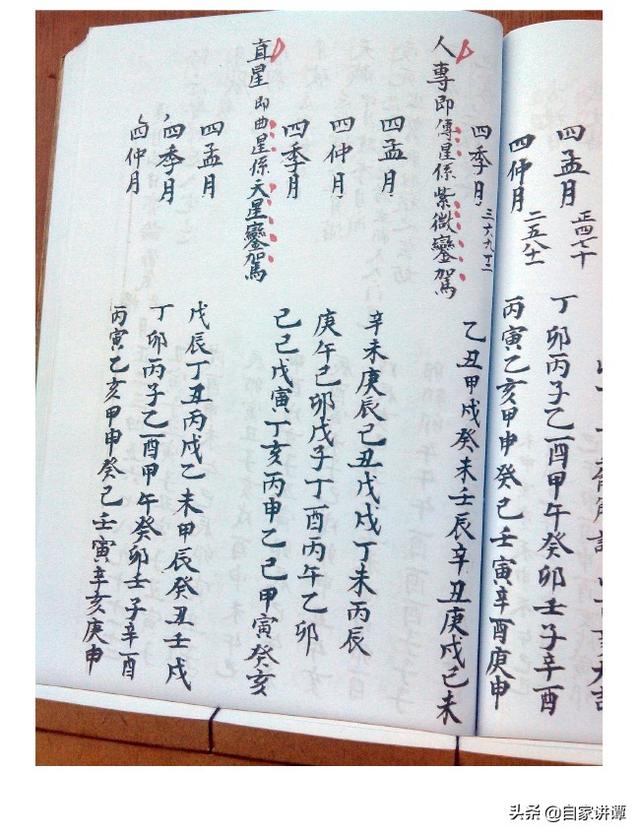 四孟月 正四七十 丁卯丙子乙酉甲午癸卯壬子辛酉
四仲月 二五八十一 丙寅乙亥甲申癸巳壬寅辛酉庚申
四季月 三六九十二 乙丑甲戌癸未壬辰辛丑庚戌己未
人專即傳星係紫微鑾駕
四孟月 辛未庚辰己丑戊戌丁未丙辰
四仲月 庚午己卯戊子丁酉丙午乙卯
四季月 己巳戊寅丁亥丙申乙巳甲寅癸亥
直星即曲星係天星鑾駕
四孟月 戊辰丁丑丙戌乙未甲辰癸丑壬戌
四季月 丁卯丙子乙酉甲午癸卯壬子辛酉
四仲月 丙寅乙亥甲申癸巳壬寅辛亥庚申
头条 @自家讲谭